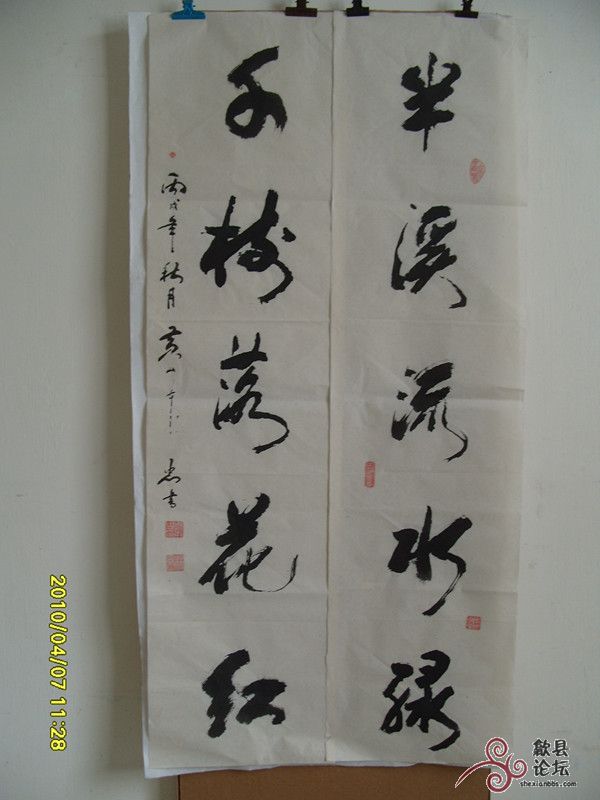 半溪流水绿
千树落花红
丙戌年秋月黄山
书
2010/04/07 11:28
歙县
论坛
shexianbbs.com